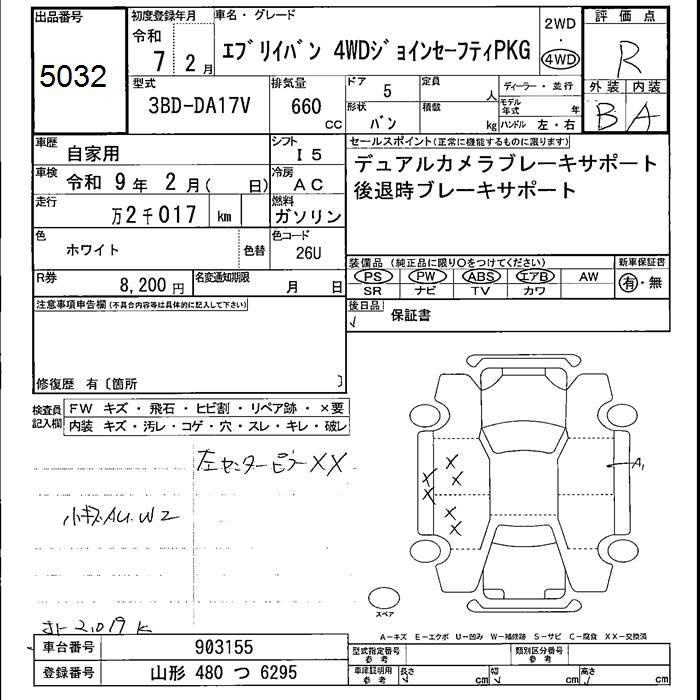 出品番号
5032
初度登録年月
令和
7 2 月
車名・グレード
エブリイバン 4WDジョインセーフティPKG
2WD
・
4WD
評価点
R
外装 内装
B A
型式
3BD-DA17V
排気量
660
CC
ドア
5
定員
人
形状
バン
積載
kg
ディーラー・並行
モデル年式
年
ハンドル 左・右
車歴
自家用
シフト
I 5
車検
令和 9 年 2 月( 日)
冷房
AC
走行
万2千017 km
燃料
ガソリン
色
ホワイト
色替
色コード
26U
R券
8,200 円
名変通知期限
月 日
セールスポイント(正常に機能するものに限ります)
デュアルカメラブレーキサポート
後退時ブレーキサポート
装備品(純正品に限り○をつけてください)
PS PW ABS エアB AW
SR ナビ TV カワ
新車保証書
有・無
後日品
√ 保証書
注意事項申告欄(不具合内容等は具体的に記入して下さい)
修復歴 有〔箇所 〕
検査員記入欄
FW キズ・飛石・ヒビ割・リペア跡・×要
内装 キズ・汚レ・コゲ・穴・スレ・キレ・破レ
左センターピラーXX
小キズAU.W2
オト 2,019 K
X
X
X
X
X
X
A1
スペア
A-キズ E-エクボ U-凹み W-補修跡 S-サビ C-腐食 XX-交換済
車台番号
903155
登録番号
山形 480 つ 6295
型式指定番号
参考
類別区分番号
参考
車庫証明用
参考
長さ
√ cm
幅
√ cm
高さ
√ cm